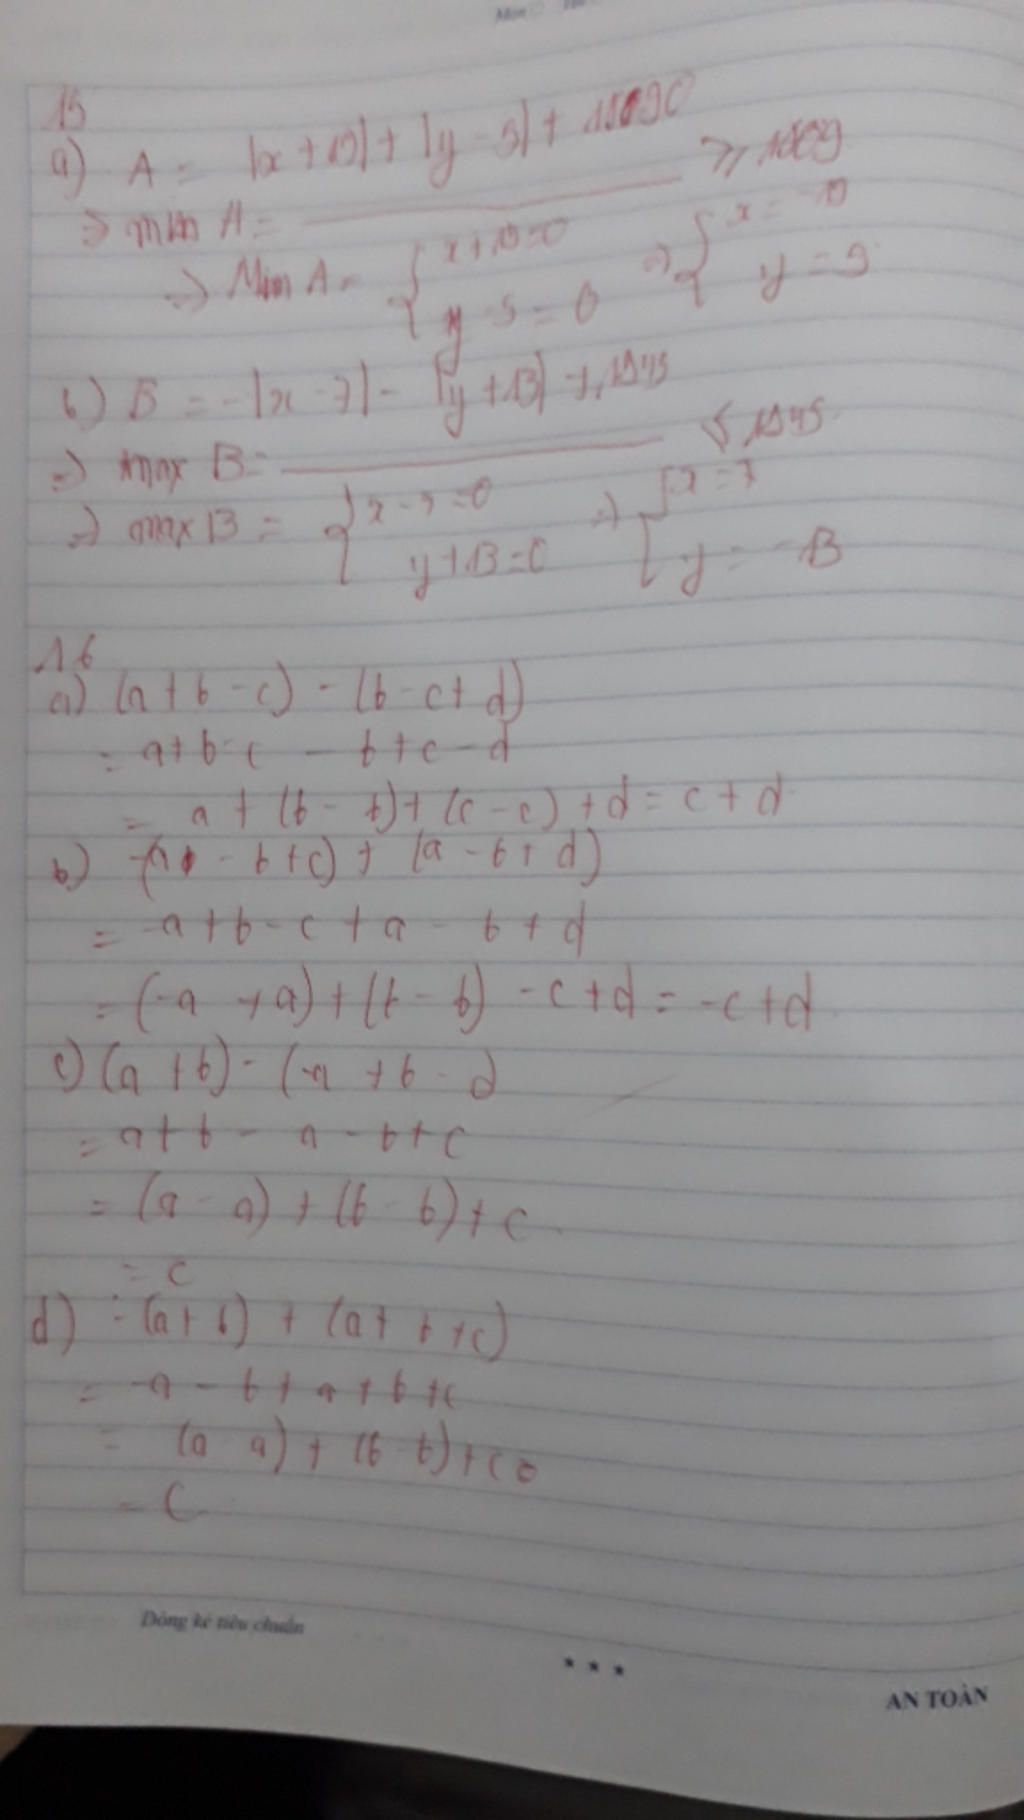 15
a) A = |x + 19| + |y - 5| + 1890
=> min A = ≥ 1809
=> Min A = { x + 19 = 0 => { x = -19
y - 5 = 0 y = 5
b) B = -|x - 7| - |y + 13| + 1945
=> max B = ≤ 1945
=> max B = { x - 7 = 0 => { x = 7
y + 13 = 0 y = -13
16
a) (a + b - c) - (b - c + d)
= a + b - c - b + c - d
= a + (b - b) + (c - c) + d = c + d
b) -(a - b + c) + (a - b + d)
= -a + b - c + a - b + d
= (-a + a) + (b - b) - c + d = -c + d
c) (a + b) - (-a + b - c)
= a + b - a - b + c
= (a - a) + (b - b) + c
= c
d) -(a + b) + (a + b + c)
= -a - b + a + b + c
= (a - a) + (b - b) + c
= C
Dòng kẻ tiêu chuẩn
* * *
AN TOÀN